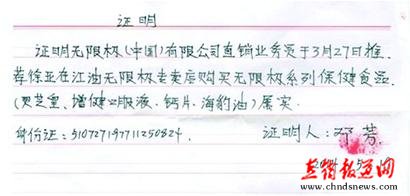 证明
证明无限极(中国)有限公司直销业务员于3月27日推
荐徐亚在江油无限极专卖店购买无限极系列保健食品
(灵芝皇、增健口服液、钙片、海豹油)属实.
身份证: 证明人:邓芳
直销报道网
www.chndsnews.com